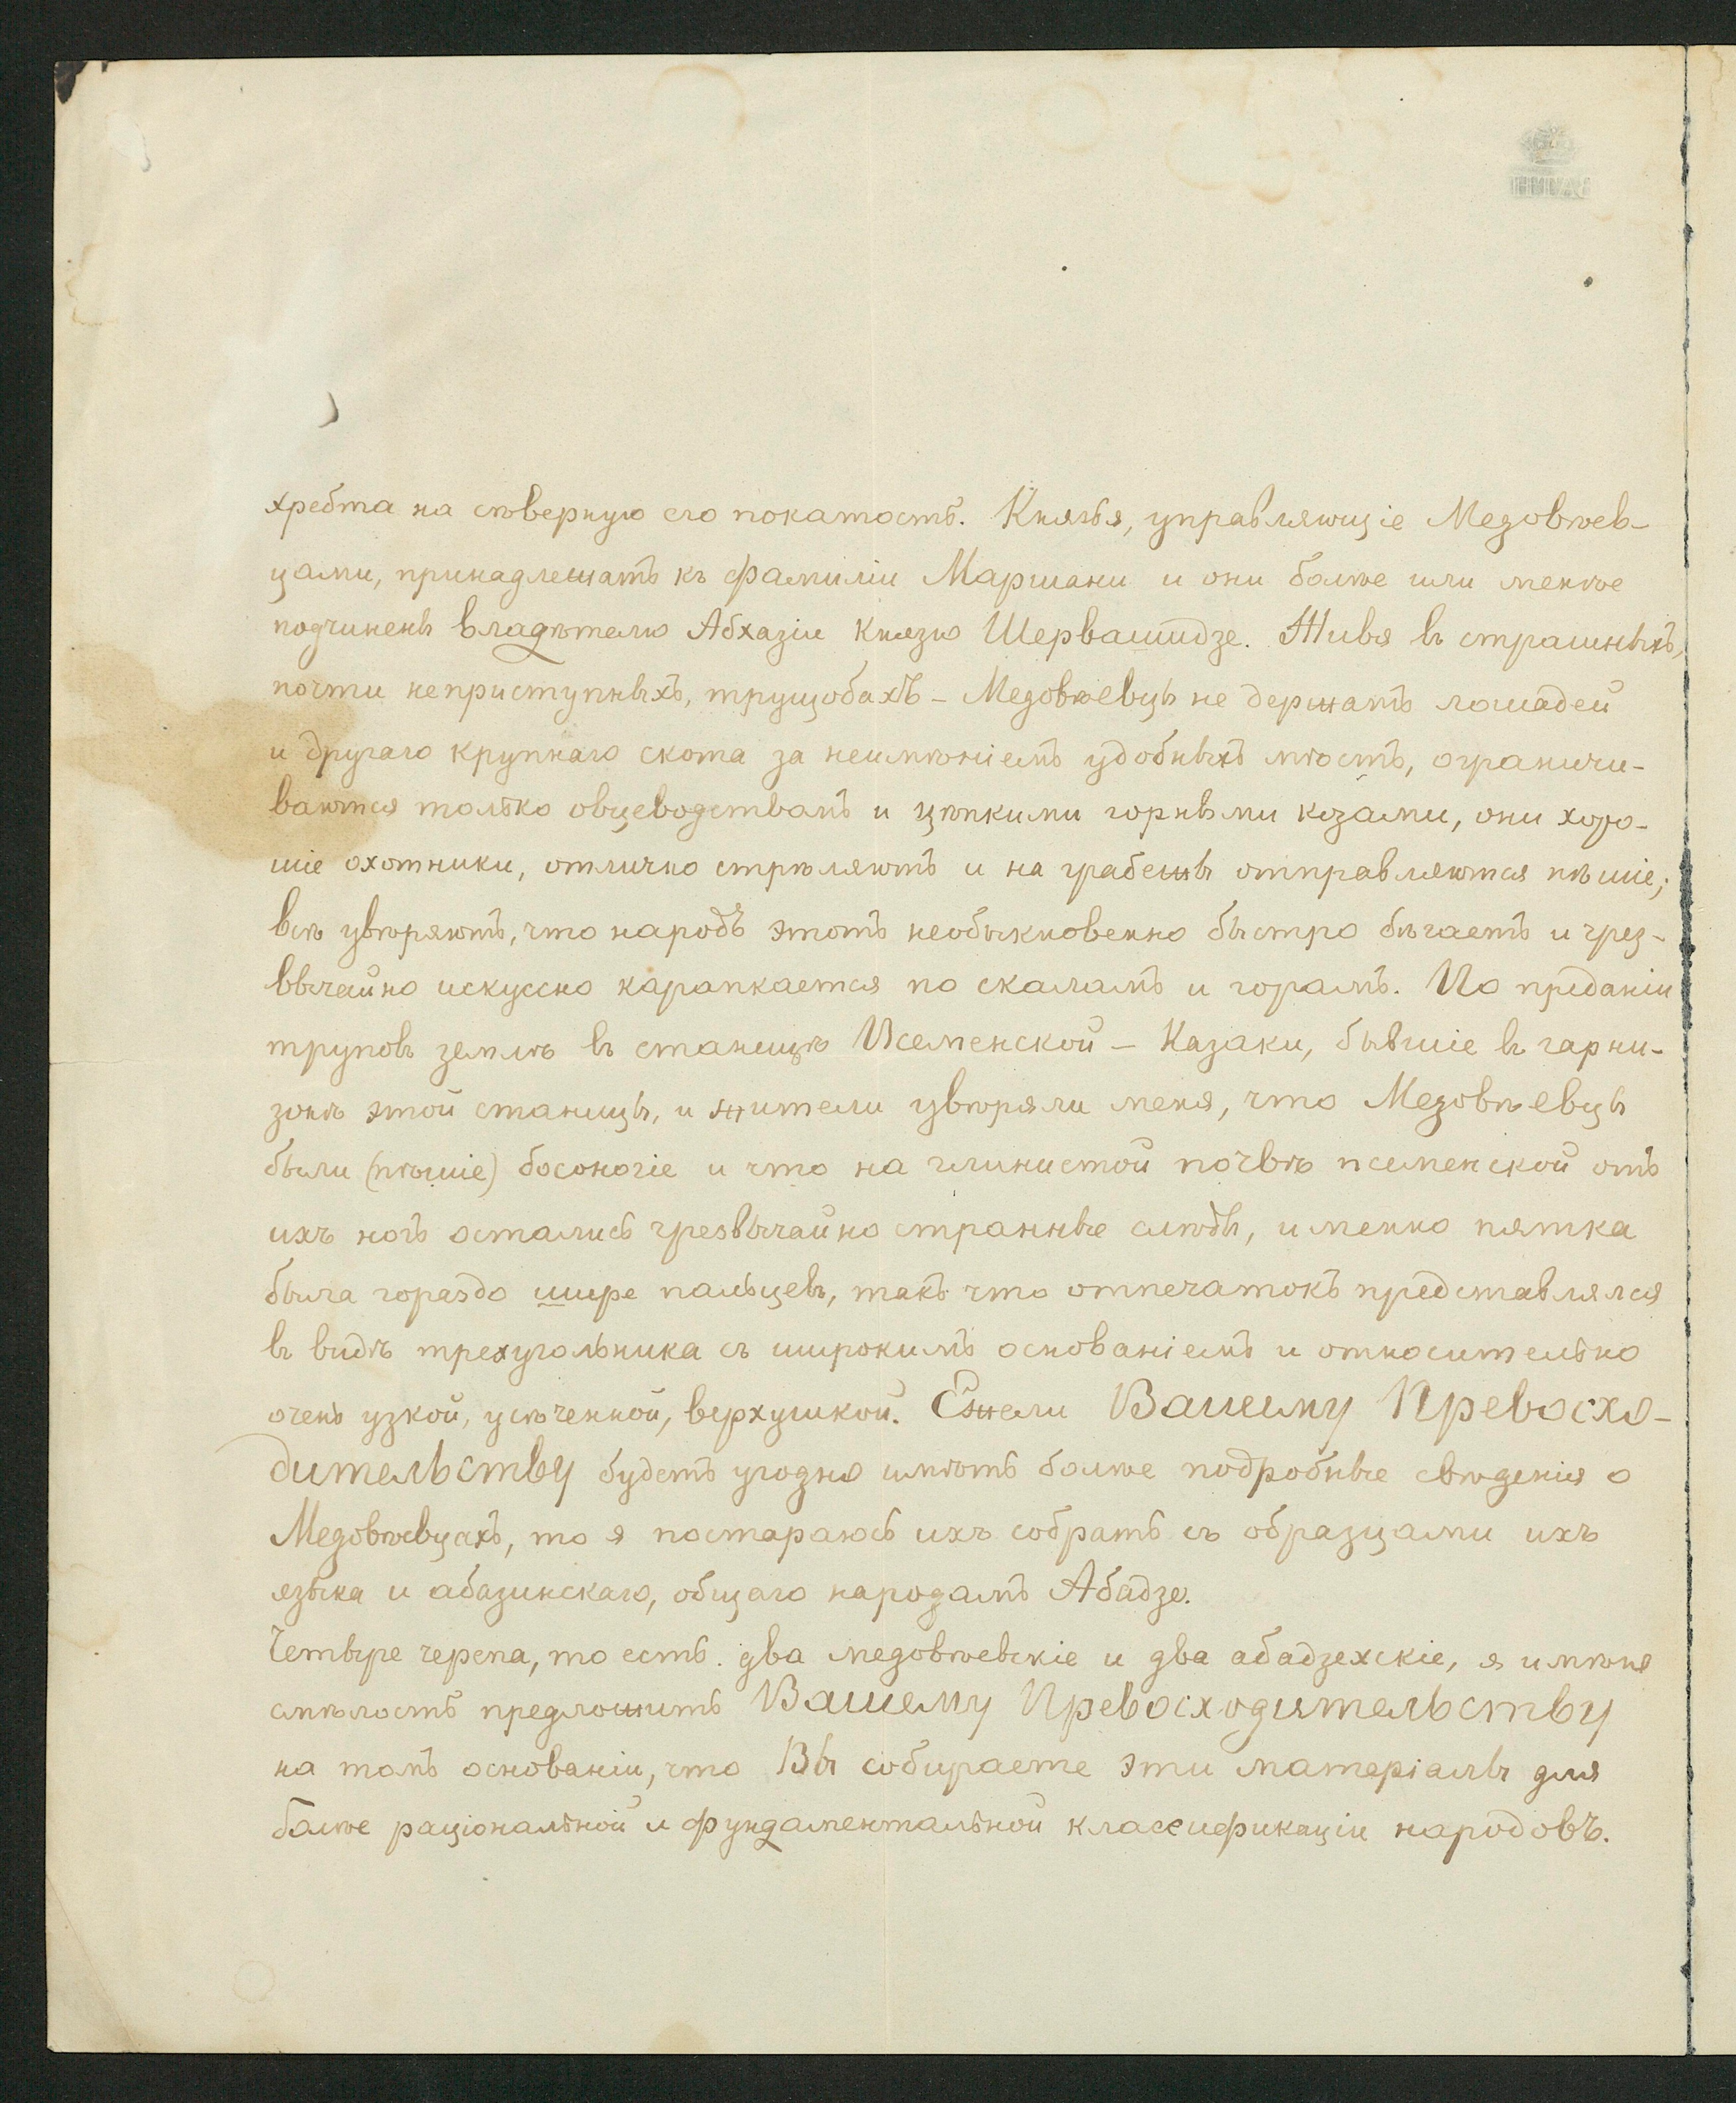 хребта на сѣверную его покатость. Князья, управляющіе Медовѣев-
цами, принадлежатъ къ фамиліи Маршани и они болѣе или менѣе
подчинены владѣтелю Абхазіи Князю Шервашидзе. Живя въ страшныхъ,
почти неприступныхъ, трущобахъ – Медовѣевцы не держатъ лошадей
и другаго крупнаго скота за неимѣніемъ удобныхъ мѣстъ, ограничи-
ваются только овцеводствомъ и цѣпкими горными козами, они хоро-
шіе охотники, отлично стрѣляютъ и на грабежъ отправляются пѣшіе;
всѣ увѣряютъ, что народъ этотъ необыкновенно быстро бѣгаетъ и чрез-
вычайно искуссно карапкается по скаламъ и горамъ. По преданіи
труповъ землѣ въ станицѣ Псеменской – Казаки, бывшіе въ гарни-
зонѣ этой станицы, и жители увѣряли меня, что Медовѣевцы
были (пѣшіе) босоногіе и что на глинистой почвѣ псеменской отъ
ихъ ногъ остались чрезвычайно странные слѣды, именно пятка
была гораздо шире пальцевъ, такъ что отпечатокъ представлялся
въ видѣ трехугольника съ широкимъ основаніемъ и относительно
очень узкой, усѣченной, верхушкой. Ежели Вашему Превосхо-
дительству будетъ угодно имѣть болѣе подробные свѣденія о
Медовѣевцахъ, то я постараюсь ихъ собрать съ образцами ихъ
языка и абазинскаго, общаго народамъ Абадзе.
Четыре черепа, то есть два медовѣевскіе и два абадзехскіе, я имѣю
смѣлость предложить Вашему Превосходительству
на томъ основаніи, что Вы собираете эти матеріалы для
болѣе раціональной и фундаментальной классификаціи народовъ.